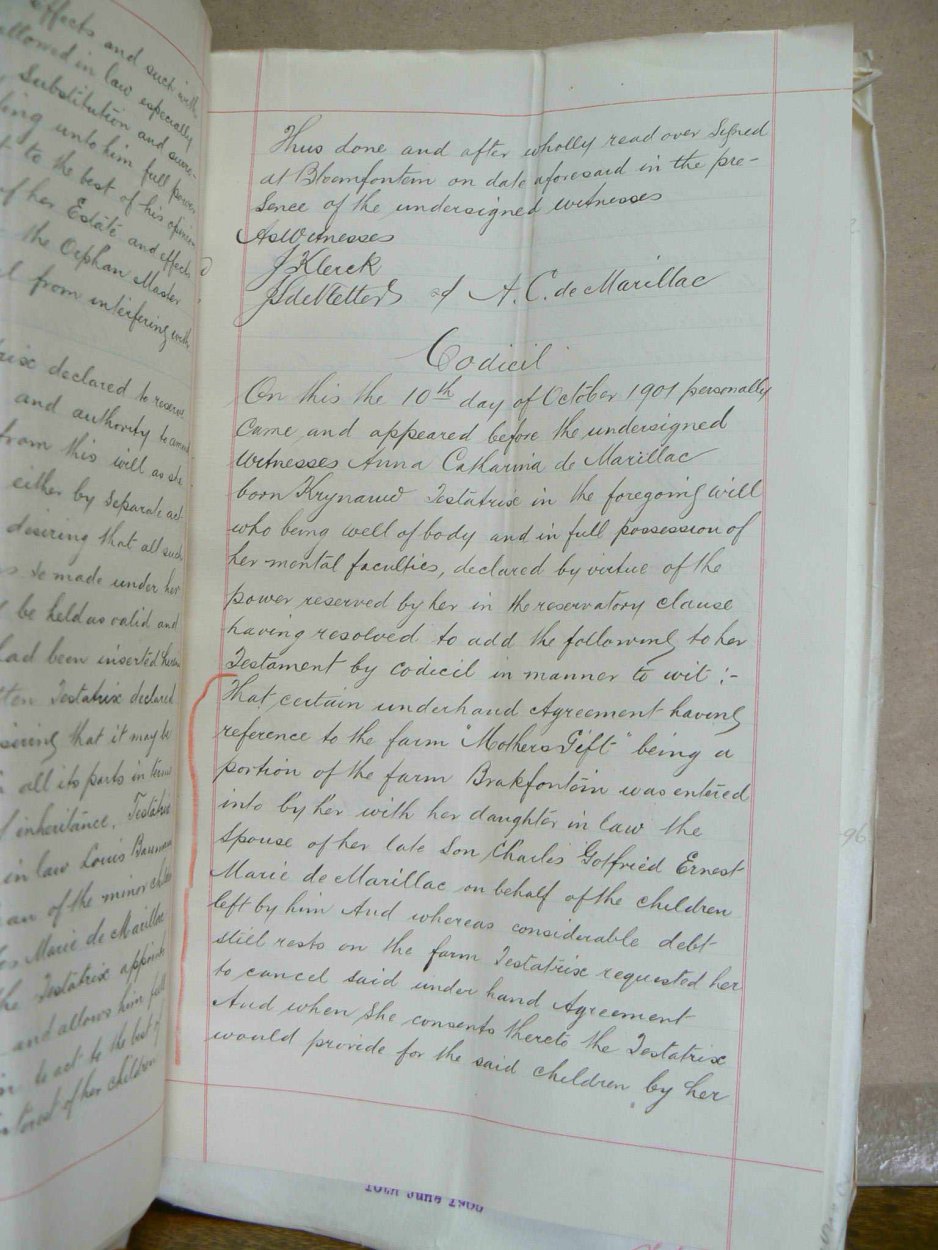 effects and such
allowed in law especially
Substitution and
unto him full power
to the best of his
of her Estate and effects
the Orphan Master
from interfering with
declared to reserve
and authority to
from this will as she
either by separate act
desiring that all such
so made under her
be held as valid and
had been inserted
Testatrix declared
that it may be
all its parts in
inheritance. Testatrix
in law Louis
of the minor
Marie de Marillac
the Testatrix
and allows him full
to act to the best of
of her children
Thus done and after wholly read over Signed
at Bloemfontein on date aforesaid in the pre-
sence of the undersigned witnesses
As Witnesses
J Klerck
sd A. C. de Marillac
Codicil
On this the 10th day of October 1901 personally
came and appeared before the undersigned
Witnesses Anna Catharina de Marillac
born Krynauw Testatrix in the foregoing will
who being well of body and in full possession of
her mental faculties, declared by virtue of the
power reserved by her in the reservatory clause
having resolved to add the following to her
Testament by codicil in manner to wit :-
That certain underhand Agreement having
reference to the farm "Mothers Gift" being a
portion of the farm Brakfontein was entered
into by her with her daughter in law the
spouse of her late Son Charles Gotfried Ernest
Marie de Marillac on behalf of the children
left by him And whereas considerable debt
still rests on the farm Testatrix requested her
to cancel said under hand Agreement
And when she consents thereto the Testatrix
would provide for the said children by her
96
10th June